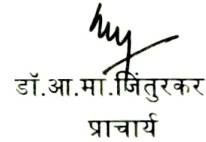 डॉ.आ.मा.जिंतुरकर
प्राचार्य